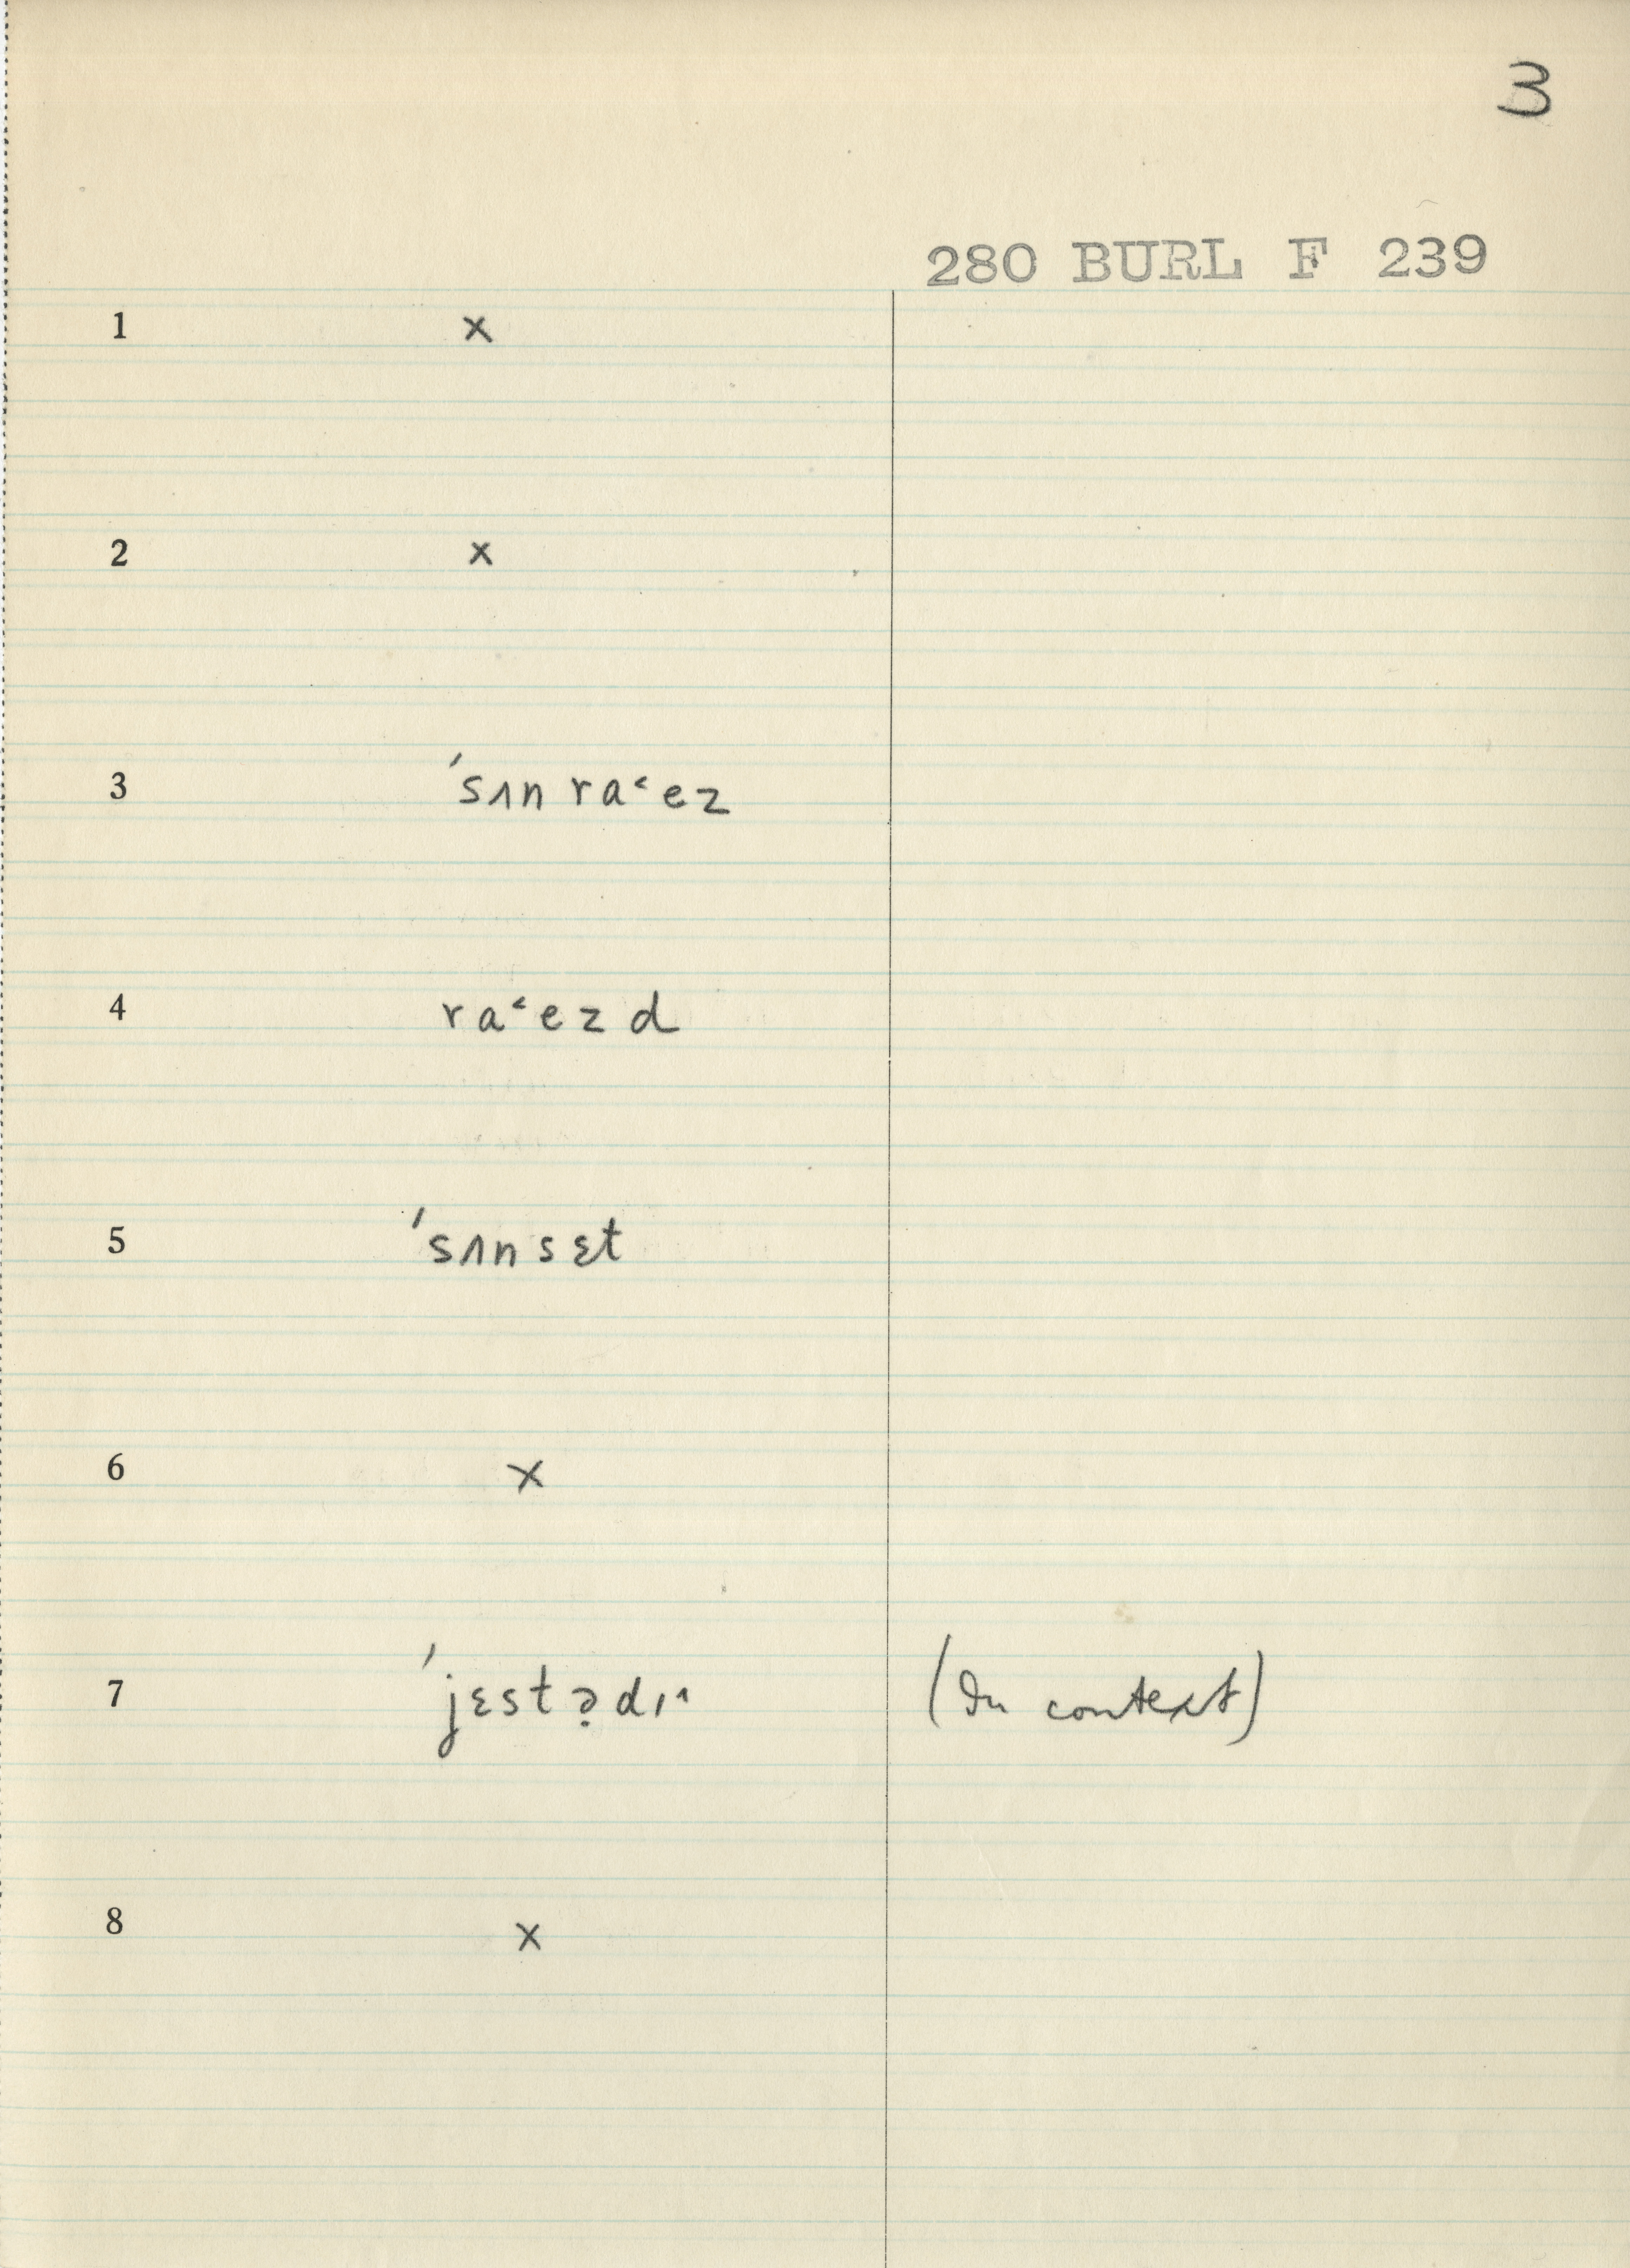 3
280 BURL F 239
1 x
2 x
3 ˈsʌn ra˂ez
4 ra˂ezd
5 ˈsʌnsɛt
6 x
7 ˈjɛstə̣dɪ˄ (In context)
8 x